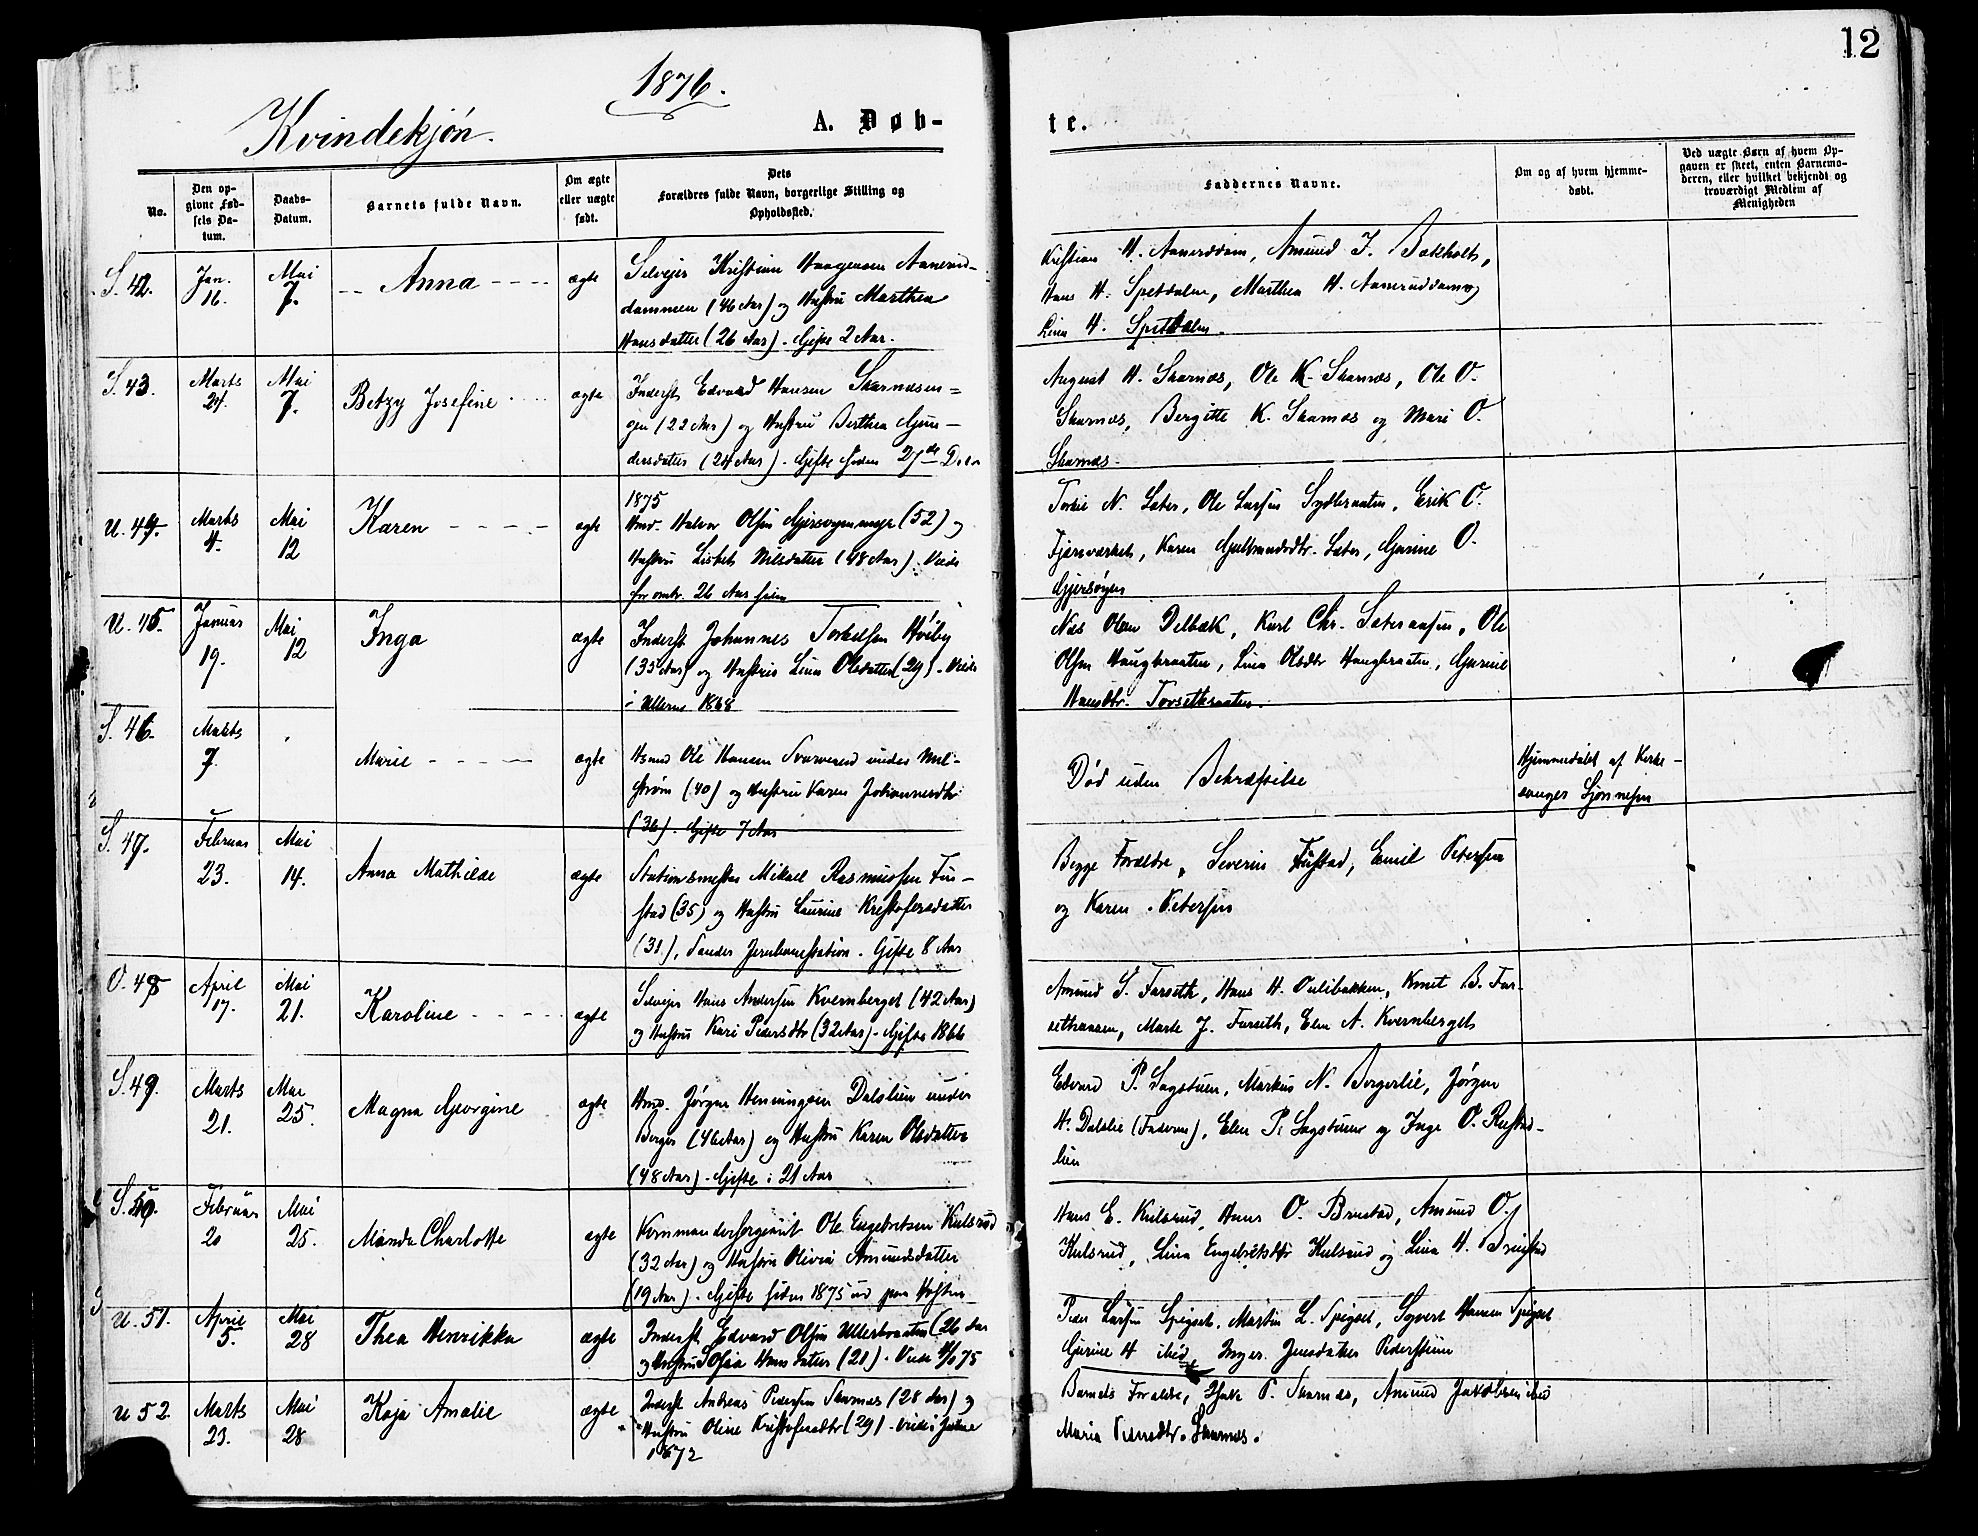 12
1876.
Kvindekjøn.
A. Døb-
te.
No.
Den op-
givne Fød-
sels Da-
tum.
Daabs-
Datum.
Barnets fulde Navn.
Om ægte
eller uægte
født.
Dets
Forældres fulde Navn, borgerlige Stilling og
Opholdssted.
Faddernes Navne.
Om og af hvem hjemme-
døbt.
Ved uægte Børn af hvem Op-
gaven er skeet, enten Barnemo-
deren, eller hvilket bekjendt og
troværdigt Medlem af
Menigheden
S. 42.
Jan.
16.
Mai
7.
Anna
ægte
Selveier Kristian Haagensen Aanerud-
dammen (46 Aar) og Hustru Marthea
Hansdatter (26 Aar). Gifte 2 Aar.
Kristian H. Aaneruddam, Amund J. Bakholt,
Hans H. Spetalen, Marthea H. Aaneruddam og
Lina H. Spetalen.
S. 43.
Marts
24.
Mai
7.
Betzy Josefine
ægte
Inderst Edvard Hansen Skarnæsen-
gen (22 Aar) og Hustru Berthea Gun-
dersdatter (24 Aar). Gifte siden 27de Dcbr
1875
August H. Skarnæs, Ole K. Skarnæs, Ole O.
Skarnæs, Bergitte K. Skarnæs og Mari O.
Skarnæs.
U. 44.
Marts
4.
Mai
12
Karen
ægte
Hmd. Halvor Olsen (52) og
Hustru Lisbet Nilsdatter (48 Aar). Viede
for omtr. 26 Aar siden
N. Sæter, Ole Larsen Sydbraaten, Erik O.
Karen Gulbrandsdtr. Sæter, Gurine O.
U. 45.
Januar
19.
Mai
12
Inga
ægte
Inderst Johannes Torkelsen Høiby
(35 Aar) og Hustru Lina Olsdatter (29). Viede
i Ullern 1868
Nils Olsen Delbæk, Karl Chr. Ole
Olsen Haugbraaten, Lina Olsdtr Haugbraaten, Gurine
Hansdtr. Torsetbraaten.
S. 46.
Marts
7.
Marie
ægte
Hsmd Ole Hansen under Mel-
strøm (40) og Hustru Karen Johannesdtr
(36). Gifte 7 Aar
Død uden Bekræftelse
Hjemmedøbt af Kirke-
sanger Sjønnesen
S. 47.
Februar
23.
Mai
14.
Anna Mathilde
ægte
Stationsmester Mikael Rasmussen Fin-
stad (35) og Hustru Laurine Kristofersdatter
(31), Sander Jernbanestation. Gifte 8 Aar
Begge Forældre, Severin Finstad, Emil Petersen
og Karen Petersen
O. 48
April
17.
Mai
21.
Karoline
ægte
Selveier Hans Andersen Kvernberget (42 Aar)
og Hustru Kari Pedersdtr (32 Aar). Gifte 1866
Amund S. Farseth, Hans H. Oulibakken, Knut B. Far-
Marte J. Farseth, Elen A. Kvernberget
S. 49.
Marts
21.
Mai
25.
Magna Georgine
ægte
Hmd. Jørgen Henningsen Dalslien under
Berger (46 Aar) og Hustru Karen Olsdatter
(48 Aar). Gifte i 21 Aar
Edvard P. Sagstuen, Markus N. Bergerlie, Jørgen
H. Dalslie (Faderen), Elen P. Sagstuen og Inge O. Rustad-
lien
S. 50.
Februar
20
Mai
25.
Manda Charlotte
ægte
Kommandersergeant Ole Engebretsen Kulsrud
(32 Aar) og Hustru Olivia Amundsdatter
(19 Aar). Gifte siden 1875 ud paa Høsten
Hans E. Kulsrud, Hans O. Brustad, Amund O.
Kulsrud, Lina Engebretsdtr Kulsrud og Lina H. Brustad
U. 51.
April
5.
Mai
28
Thea Henrikka
ægte
Inderst Edvard Olsen Ullerbraaten (26 Aar
og Hustru Sofia Hansdatter (21). Viede 75
Peder Larsen Spigset, Martin L. Spigset, Syvert Hansen Spigset
Gurine H ibid, Inger Jensdatter Pederstuen
U 52.
Marts
23.
Mai
28
Kaja Amalie
ægte
Inderst Andreas Pedersen Skarnæs (28 Aar) og
Hustru Oline Kristofersdtr (29). Viede i
1872
Barnets Forældre, P. Skarnæs, Amund Jakobsen ibid
Maria Pedersdtr. Skarnæs.